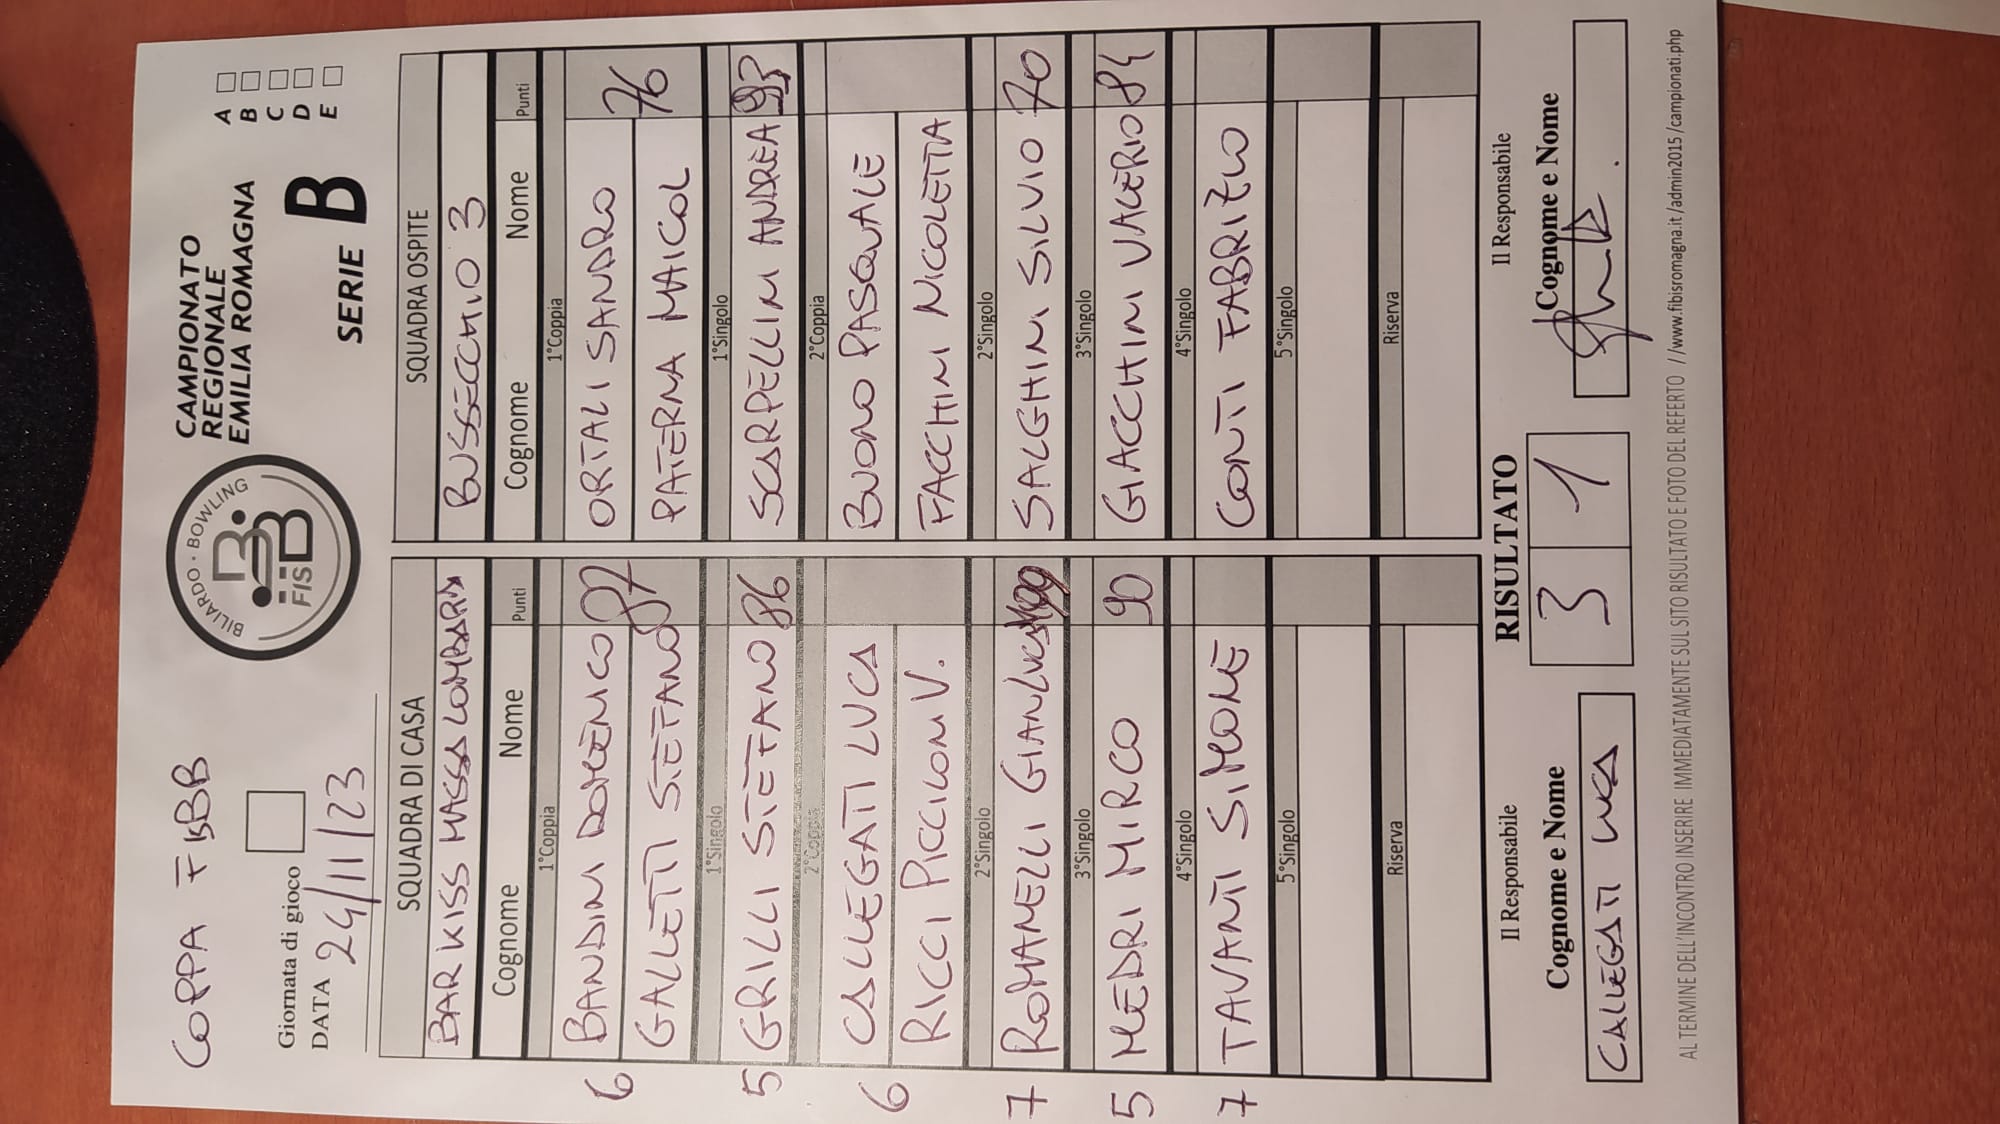 COPPA FISBB
BILIARDO · BOWLING
FISBB
CAMPIONATO
REGIONALE
EMILIA ROMAGNA
SERIE B
A
B
C
D
E
Giornata di gioco
DATA 24/11/23
SQUADRA DI CASA SQUADRA OSPITE
BAR KISS MASSA LOMBARDA BUSSECCHIO 3
Cognome Nome Punti Cognome Nome Punti
1°Coppia 1°Coppia
6 BANDINI DOMENICO 87 ORTALI SANDRO 76
GALLETTI STEFANO PATERNA MAICOL
1°Singolo 1°Singolo
5 GRILLI STEFANO 86 SCARPELLINI ANDREA 93
2°Coppia 2°Coppia
6 CALLEGATI LUCA BUONO PASQUALE
RICCI PICCILONI V. FACCHINI NICOLETTA
2°Singolo 2°Singolo
7 ROMANELLI GIANLUCA SALGHINI SILVIO 70
3°Singolo 3°Singolo
5 MEDRI MIRCO 90 GIACCHINI VALERIO 84
4°Singolo 4°Singolo
7 TAVANTI SIMONE CONTI FABRIZIO
5°Singolo 5°Singolo
Riserva Riserva
Il Responsabile RISULTATO Il Responsabile
Cognome e Nome 3 1 Cognome e Nome
CALLEGATI LUCA
AL TERMINE DELL'INCONTRO INSERIRE IMMEDIATAMENTE SUL SITO RISULTATO E FOTO DEL REFERTO //www.fibisromagna.it/admin2015/campionati.php